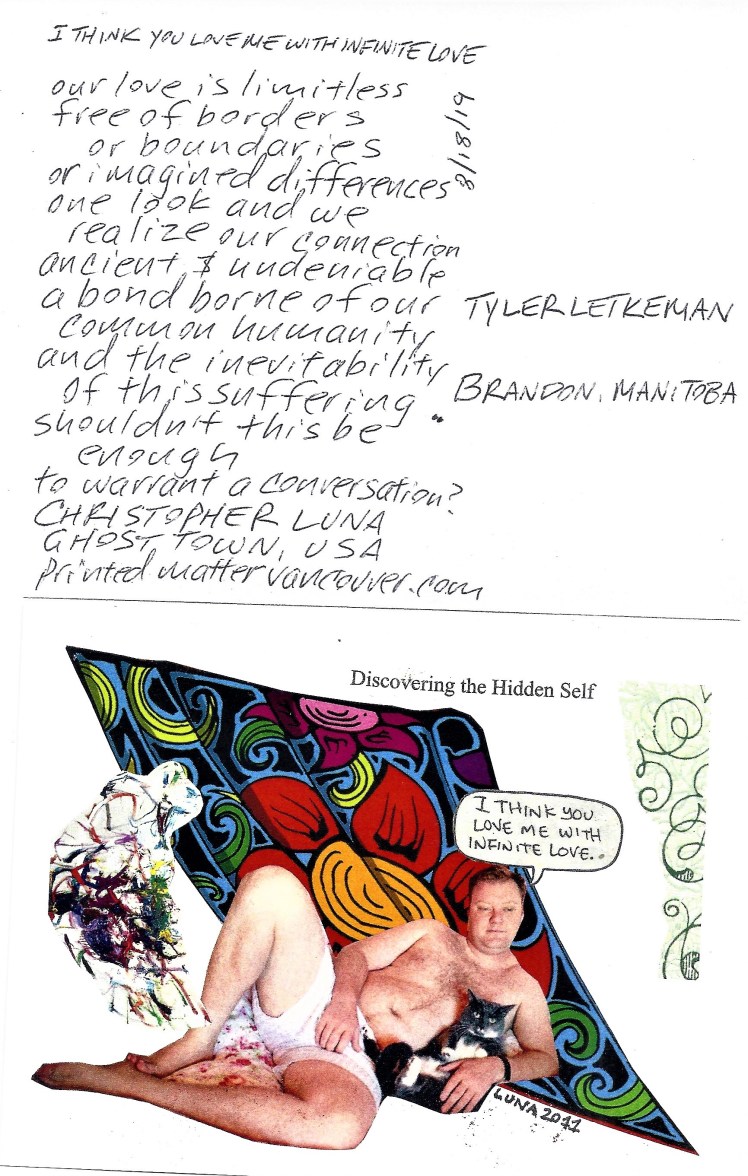 I THINK YOU LOVE ME WITH INFINITE LOVE
our love is limitless
free of borders
or boundaries
or imagined differences
one look and we
realize our connection
ancient & undeniable
a bond borne of our
common humanity
and the inevitability
of this suffering
shouldn't this be
enough
to warrant a conversation?
CHRISTOPHER LUNA
GHOST TOWN, USA
printedmattervancouver.com
8/18/19
TYLER LETKEMAN
BRANDON, MANITOBA
Discovering the Hidden Self
I THINK YOU
LOVE ME WITH
INFINITE LOVE..
LUNA 2011